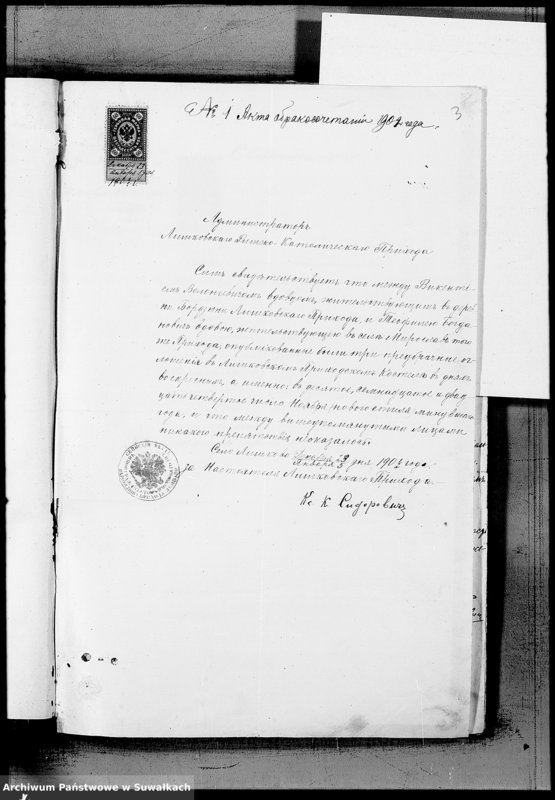 № 1 Акта бракосочетанія 1907 года.
3
Декабря 23
Января
Администраторъ
Лишковскаго Римско-Католическаго Прихода
Симъ свидѣтельствуетъ что между Викенті-
емъ вдовцомъ, жительствующимъ въ дерев-
ни Бордзюны Лишковскаго Прихода, и Теофилею Богда-
новичъ вдовою, жительствующею въ селѣ Мирославѣ того
же Прихода, опубликованы были три предбрачные ог-
лошенія въ Лишковскомъ Приходскомъ Костелѣ въ дняхъ
воскресныхъ, а именно: въ десятое, семнадцатое и двад-
цать четвертое число Ноября новаго стиля минувшаго
года, и что между вышеупомянутыми лицами
никакого препятствія не оказалось.
Село Лишково Декабря 23
Января 5 дня 190 года.
за Настоятеля Лишковскаго Прихода
Кс К Сидоровичъ
Archiwum Państwowe w Suwałkach